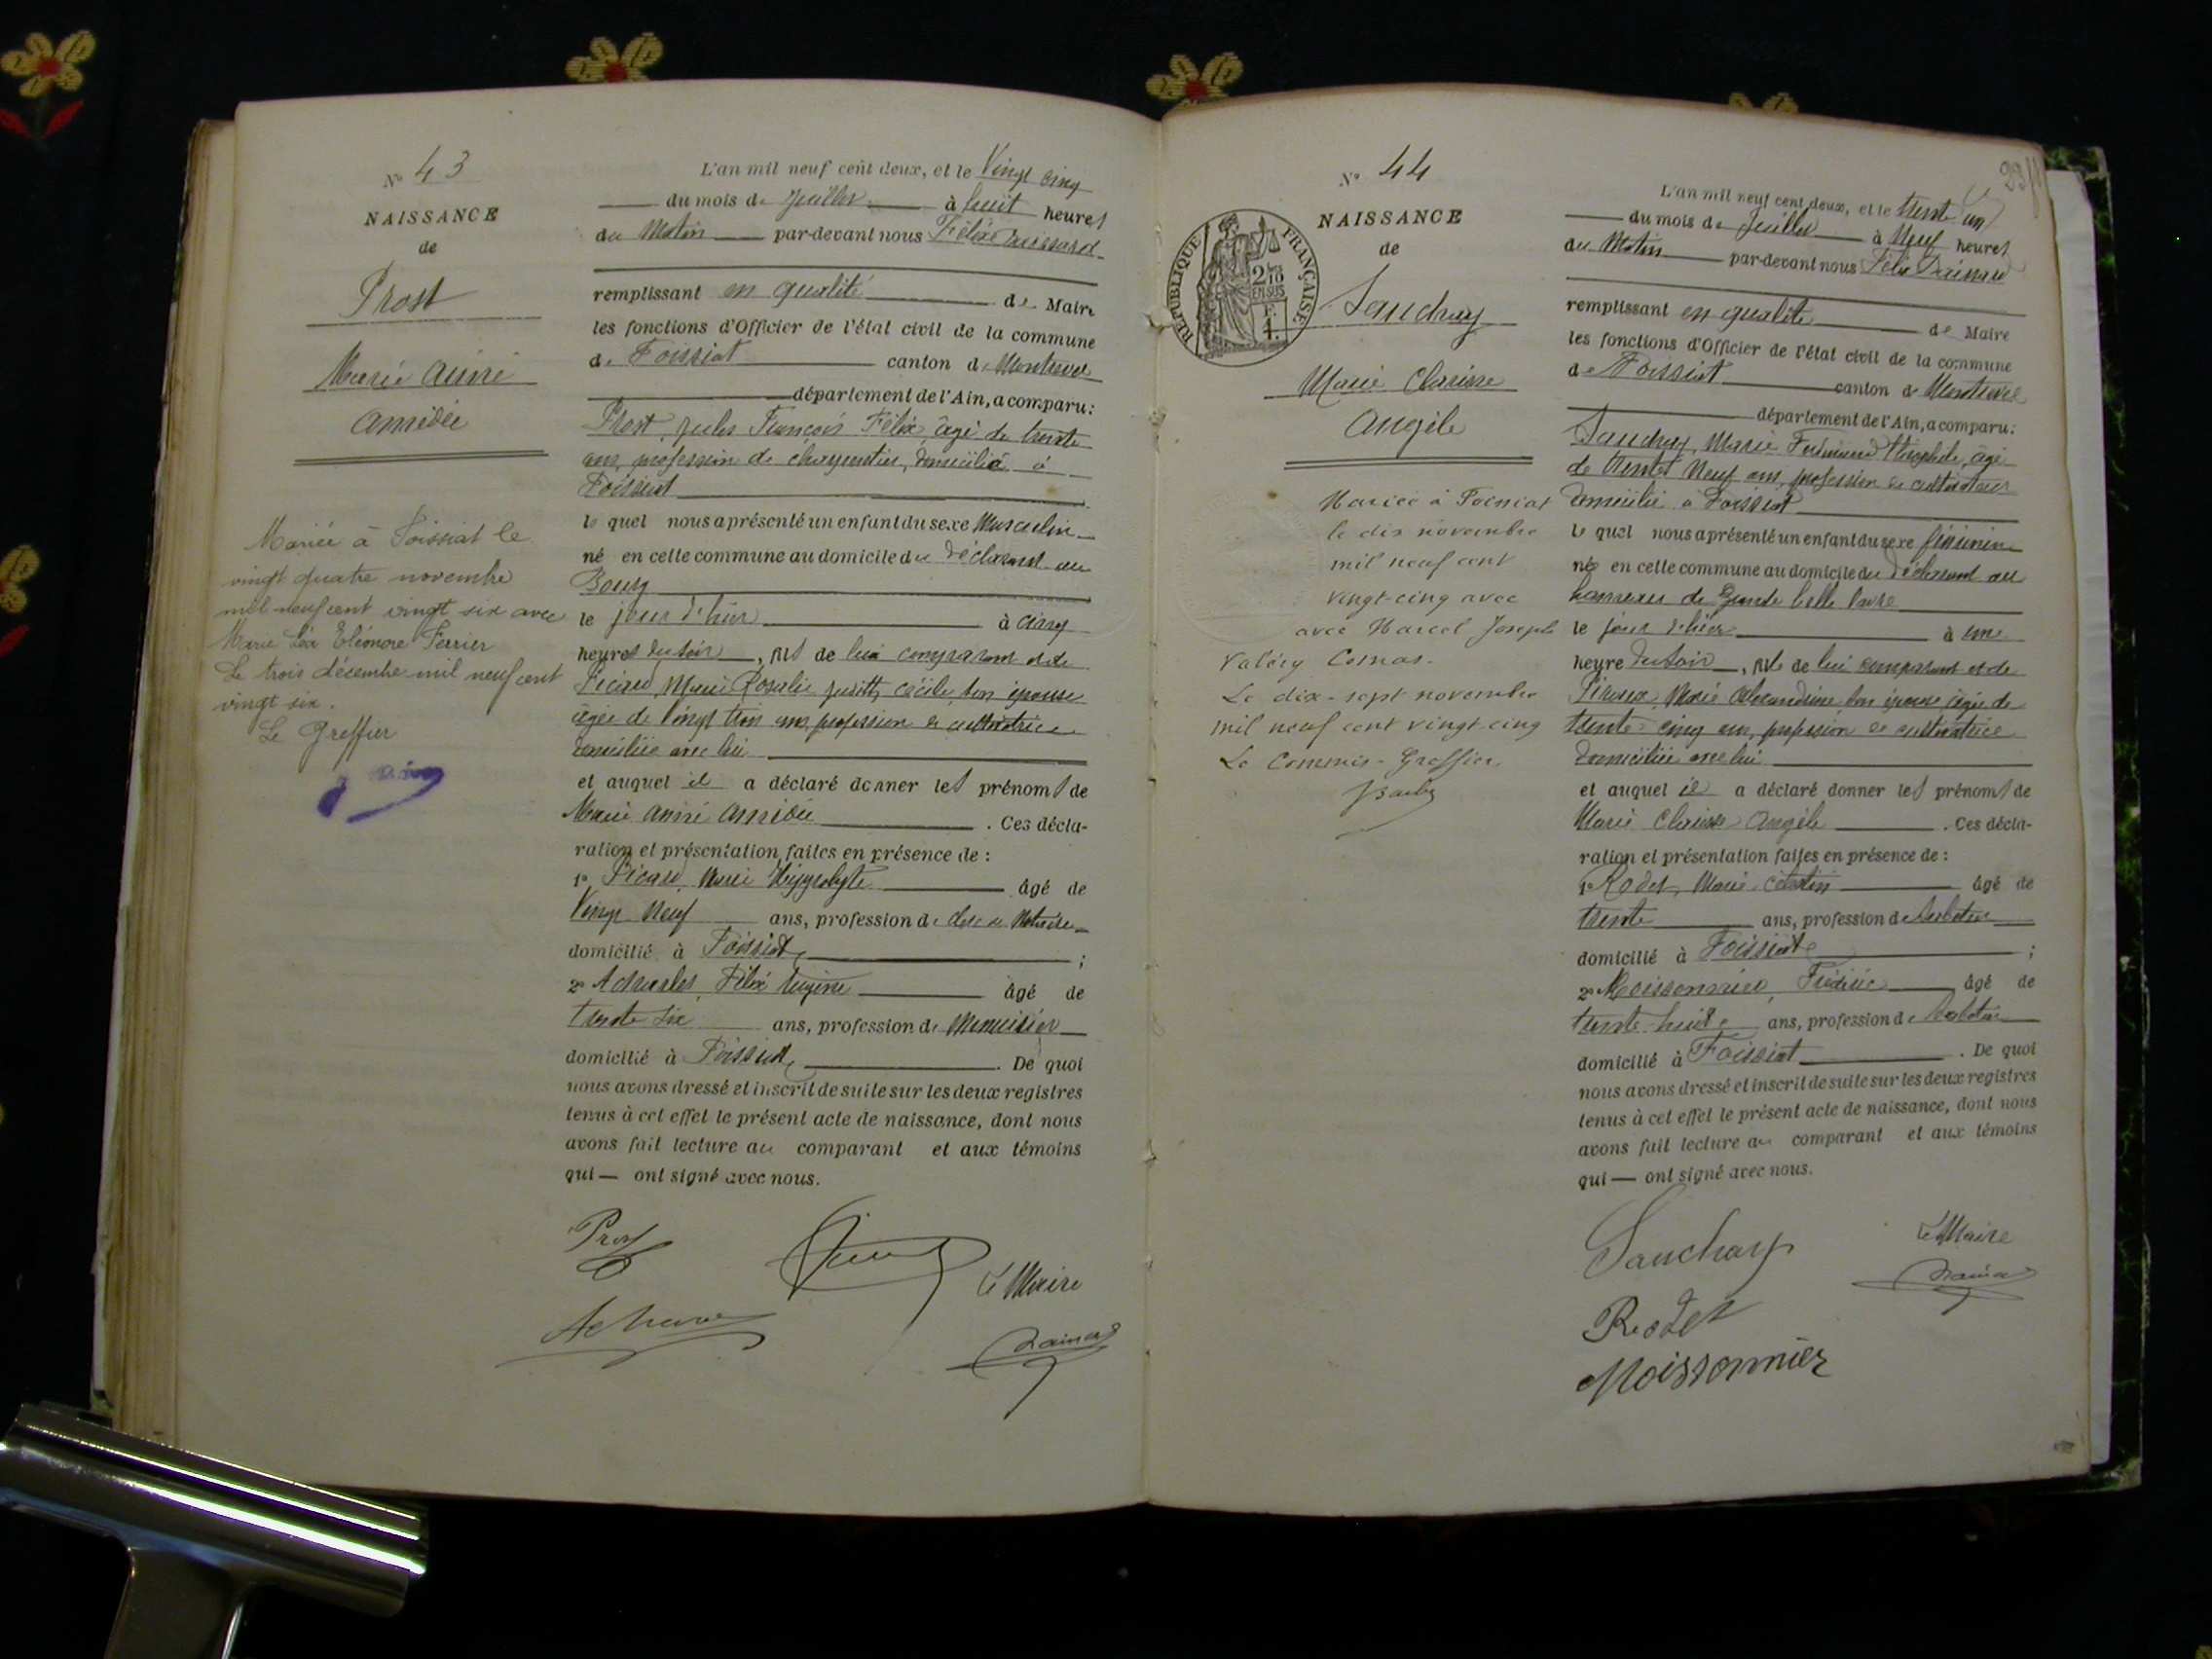 N° 43
NAISSANCE
de
Prost
Marie Aimé
Amédée
Mariée à Foissiat le
vingt quatre novembre
mil neuf cent vingt six avec
Marie Léa Eléonore Ferrier
Le trois décembre mil neuf cent
vingt six.
Le Greffier
L'an mil neuf cent deux, et le Vingt cinq
du mois de Juillet à huit heures
du Matin par-devant nous Félix
remplissant en qualité de Maire
les fonctions d'Officier de l'état civil de la commune
de Foissiat canton de Montrevel
département de l'Ain, a comparu:
Prost, Jules François Félix, âgé de trente
ans, profession de charpentier, domicilié à
Foissiat
lequel nous a présenté un enfant du sexe Masculin
né en cette commune au domicile du déclarant au
Bourg
le jour d'hier à cinq
heures du soir, fils de lui comparant et de
Picard, Marie Rosalie Judith Cécile son épouse
âgée de Vingt trois ans, profession de cultivatrice
domiciliée avec lui
et auquel il a déclaré donner les prénoms de
Marie Aimé Amédée. Ces décla-
ration et présentation faites en présence de :
1° Picard, Marie Hippolyte âgé de
Vingt Neuf ans, profession de clerc de Notaire
domicilié à Foissiat ;
2° Félix Eugène âgé de
trente six ans, profession de Menuisier
domicilié à Foissiat. De quoi
nous avons dressé et inscrit de suite sur les deux registres
tenus à cet effet le présent acte de naissance, dont nous
avons fait lecture au comparant et aux témoins
qui — ont signé avec nous.
Prost
Le Maire
N° 44
NAISSANCE
de
Sauchay
Marie Clarisse
Angèle
RÉPUBLIQUE FRANÇAISE
2/10
EN SUS
F.
1.
Mariée à Foissiat
le dix novembre
mil neuf cent
vingt-cinq avec
avec Marcel Joseph
Valéry Comas.
Le dix-sept novembre
mil neuf cent vingt cinq
Le Commis-Greffier
23
L'an mil neuf cent deux, et le trente un
du mois de Juillet à Neuf heures
du Matin par-devant nous Félix
remplissant en qualité de Maire
les fonctions d'Officier de l'état civil de la commune
de Foissiat canton de Montrevel
département de l'Ain, a comparu:
Sauchay, Marie Ferdinand Théophile, âgé
de trente Neuf ans, profession de cultivateur
domicilié à Foissiat
lequel nous a présenté un enfant du sexe féminin
née en cette commune au domicile du déclarant au
hameau de
le jour d'hier à une
heure du soir, fille de lui comparant et de
Marie Alexandrine son épouse âgée de
trente-cinq ans, profession de cultivatrice
domiciliée avec lui
et auquel il a déclaré donner les prénoms de
Marie Clarisse Angèle. Ces décla-
ration et présentation faites en présence de :
1° Rodet, Marie Célestin âgé de
trente ans, profession de
domicilié à Foissiat ;
2° Moissonnier, Frédéric âgé de
trente-huit ans, profession de
domicilié à Foissiat. De quoi
nous avons dressé et inscrit de suite sur les deux registres
tenus à cet effet le présent acte de naissance, dont nous
avons fait lecture au comparant et aux témoins
qui — ont signé avec nous.
Sauchay
Le Maire
Rodet
Moissonnier